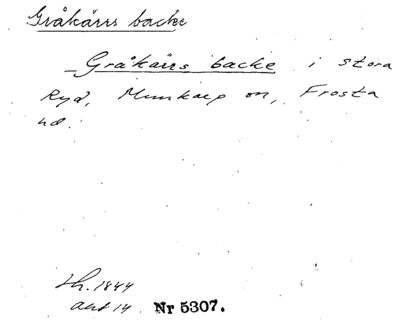 Gråkärrs backe
Gråkärrs backe i stora
Ryd, Munkarp sn, Frosta
hd.
Lh. 1844
akt 14 Nr 5307.